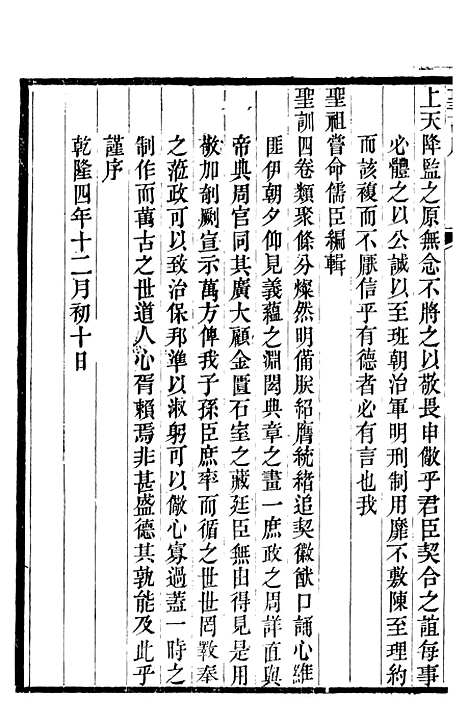 上天降監之原無念不將之以敬畏申儆乎君臣契合之誼每事
必體之以公誠以至班朝治軍明刑制用靡不敷陳至理約
而該複而不厭信乎有德者必有言也我
聖祖嘗命儒臣編輯
聖訓四卷類聚條分燦然明備朕紹膺統緒追契徽猷口誦心維
匪伊朝夕仰見義蘊之淵閎典章之畫一庶政之周詳直與
帝典周官同其廣大顧金匱石室之藏廷臣無由得見是用
敬加剞劂宣示萬方俾我子孫臣庶率而循之世世罔斁奉
之蒞政可以致治保邦準以淑躬可以儆心寡過蓋一時之
制作而萬古之世道人心胥賴焉非甚盛德其孰能及此乎
謹序
乾隆四年十二月初十日